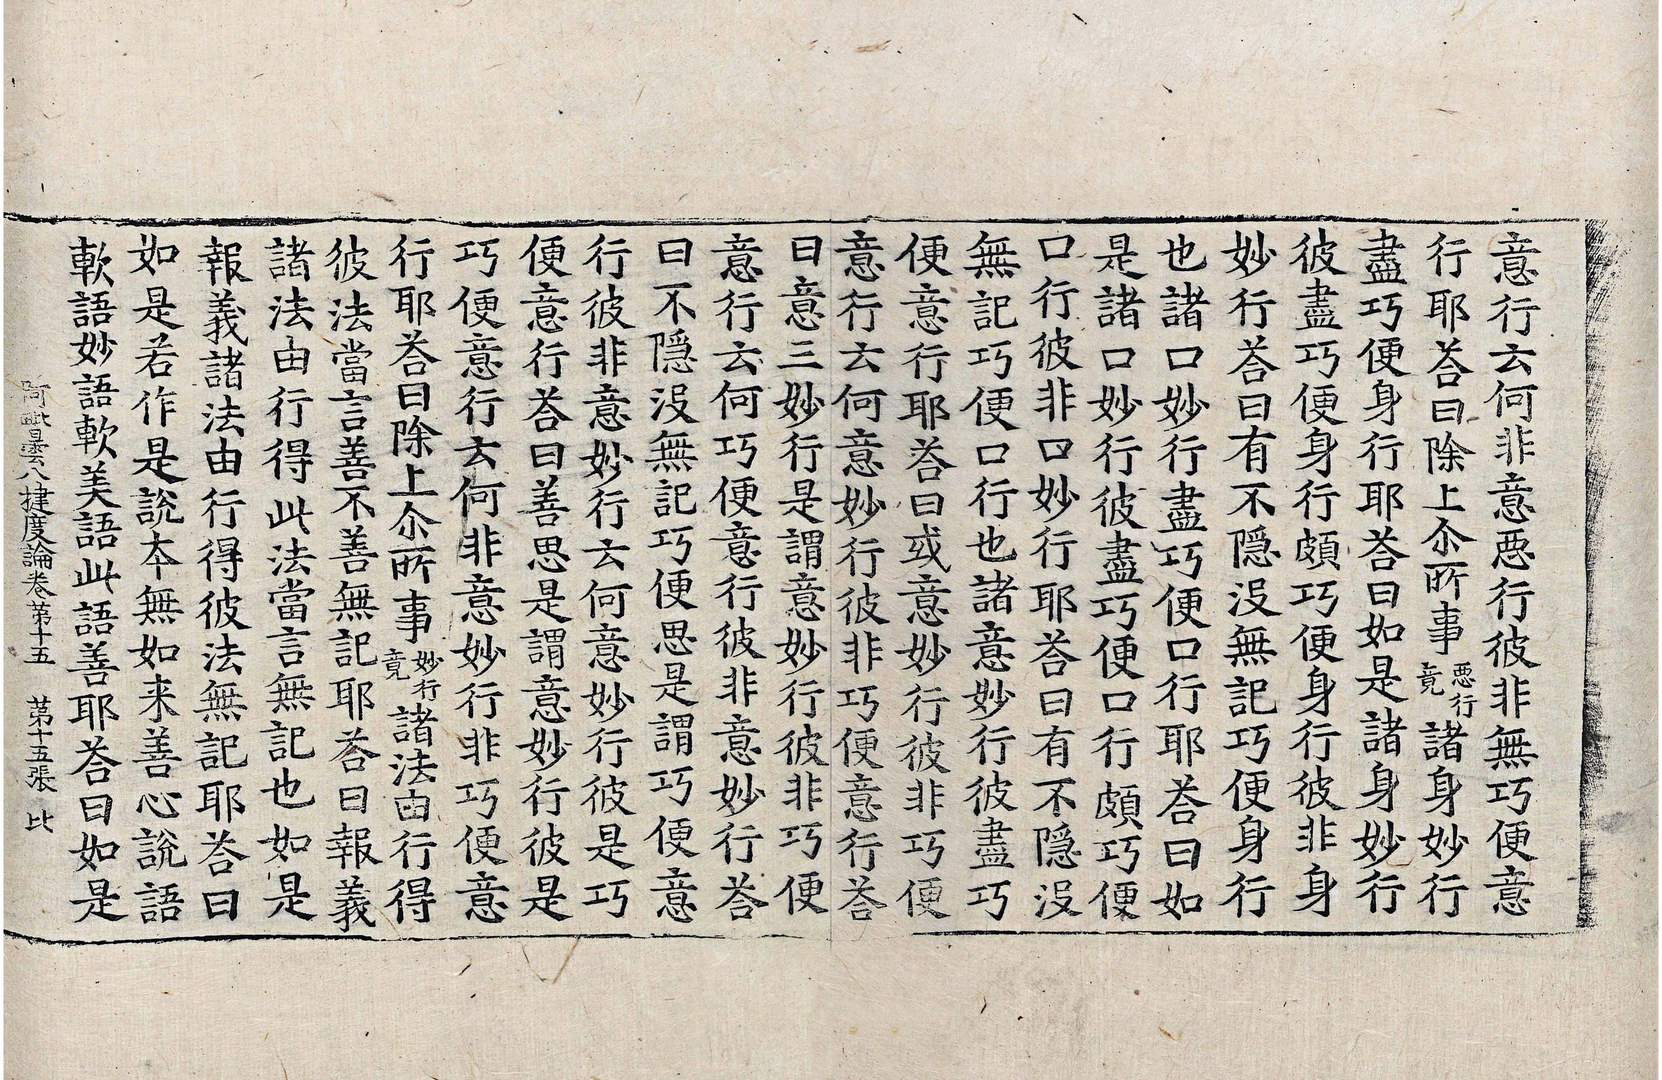 意行云何非意惡行彼非無巧便意
行耶荅曰除上尒所事惡行竟諸身妙行
盡巧便身行耶荅曰如是諸身妙行
彼盡巧便身行頗巧便身行彼非身
妙行荅曰有不隱没無記巧便身行
也諸口妙行盡巧便口行耶荅曰如
是諸口妙行彼盡巧便口行頗巧便
口行彼非口妙行耶荅曰有不隱没
無記巧便口行也諸意妙行彼盡巧
便意行耶荅曰或意妙行彼非巧便
意行云何意妙行彼非巧便意行荅
曰意三妙行是謂意妙行彼非巧便
意行云何巧便意行彼非意妙行荅
曰不隱没無記巧便思是謂巧便意
行彼非意妙行云何意妙行彼是巧
便意行荅曰善思是謂意妙行彼是
巧便意行云何非意妙行非巧便意
行耶荅曰除上尒所事妙行竟諸法由行得
彼法當言善不善無記耶荅曰報義
諸法由行得此法當言無記也如是
報義諸法由行得彼法無記耶荅曰
如是若作是說本無如来善心說語
軟語妙語軟美語此語善耶荅曰如是
阿毗曇八揵度論卷第十五　第十五張　比